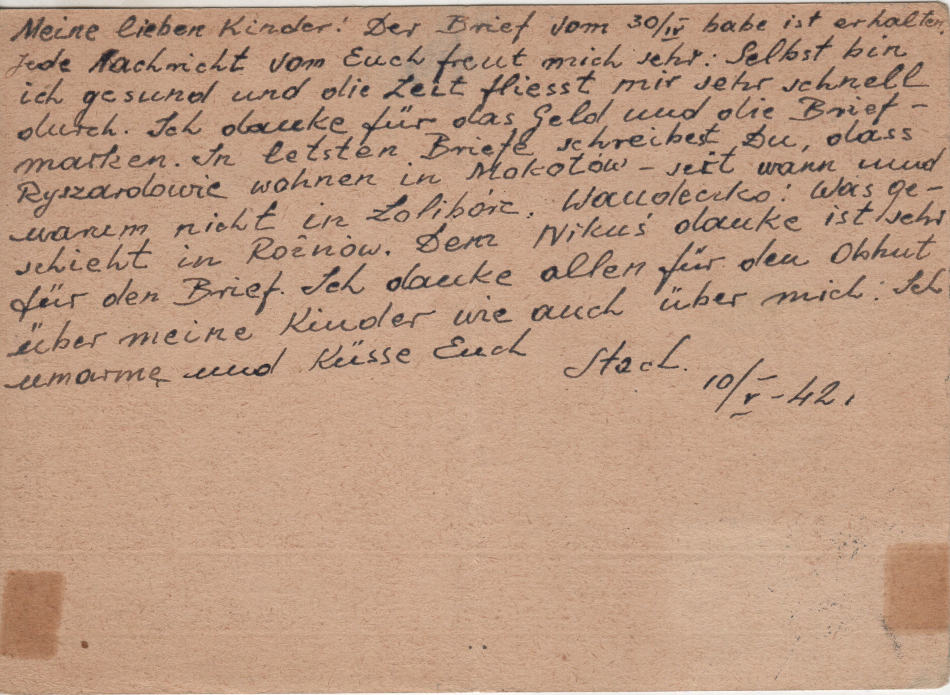 Meine lieben Kinder! Der Brief vom 30/IV babe ist erhalten.
Jede Nachricht vom Euch freut mich sehr. Selbst bin
ich gesund und die Zeit fliesst mir sehr schnell
durch. Ich danke für das Geld und die Brief-
marken. In letsten Briefe schreibest Du, dass
Ryszardowie wohnen in Mokotów - seit wann und
warum nicht in Żolibórz. Wandeczko! Was ge-
schieht in Rożnów. Dem Nikuś danke ist sehr
für den Brief. Ich danke allen für den Obhut
über meine Kinder wie auch über mich. Ich
umarme und Küsse Euch Stach.
10/V-42.